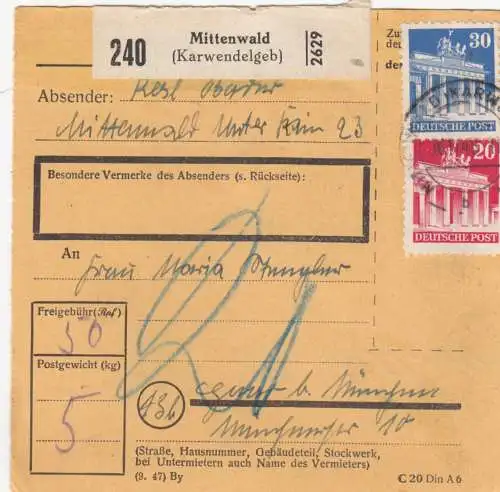 240
Mittenwald
(Karwendelgeb)
2629
Zu
de
de
30
DEUTSCHE POST
20
DEUTSCHE POST
Absender:
Mittenwald Unter Kain 23
Besondere Vermerke des Absenders (s. Rückseite):
An
Frau Maria Stengler
Freigebühr (Rpf)
50
Postgewicht (kg)
5
13b
b. München
Münchner 10
(Straße, Hausnummer, Gebäudeteil, Stockwerk,
bei Untermietern auch Name des Vermieters)
(9. 47) By
C 20 Din A 6